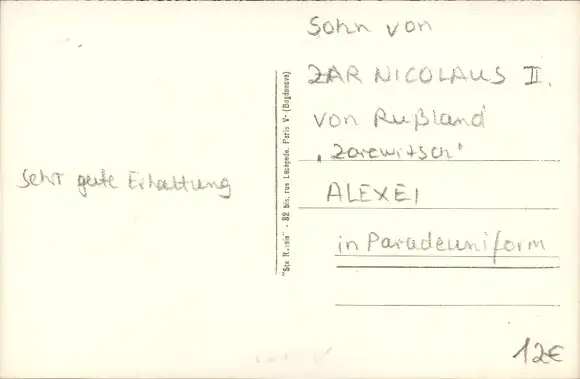 Sohn von
ZAR NICOLAUS II.
von Rußland
„Zarewitsch"
ALEXEI
in Paradeuniform
Sehr gute Erhaltung
"Ste Russie" - 82 bis, rue Lacépède. Paris V· (Bogdanova)
12€